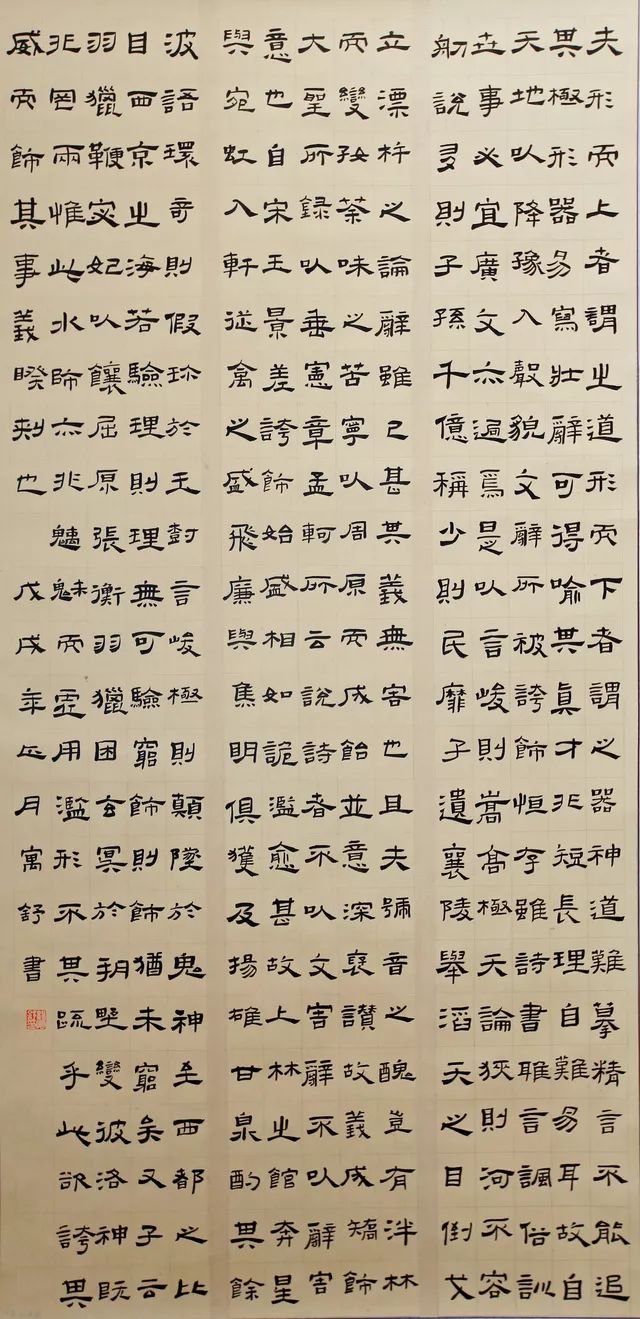 夫形而上者謂之道形而下者謂之器神道難摹精言不能追
其極形器易寫壯辭可得喻其真才非短長理自難易耳故自
天地以降豫入聲貌文辭所被誇飾恒存雖詩書雅言諷俗訓
世事必宜廣文亦過焉是以言峻則嵩高極天論狹則河不容
舠說多則子孫千億稱少則民靡孑遺襄陵舉滔天之目倒戈
立漂杵之論辭雖已甚其義無害也且夫鴞音之醜豈有泮林
而變好荼味之苦寧以周原而成飴並意深褒讚故義成矯飾
大聖所錄以垂憲章孟軻所云說詩者不以文害辭不以辭害
意也自宋玉景差誇飾始盛相如詭濫愈甚故上林之館奔星
與宛虹入軒從禽之盛飛廉與焦明俱獲及揚雄甘泉酌其餘
波語環奇則假珍於玉樹言峻極則顛墜於鬼神至西都之比
目西京之海若驗理則理無可驗窮飾則飾猶未窮矣又子云
羽獵鞭宓妃以饟屈原張衡羽獵困玄冥於朔野變彼洛神既
非罔兩惟此水師亦非魑魅而虛用濫形不其疏乎此欲誇其
威而飾其事義睽剌也戊戌年正月寓舒書